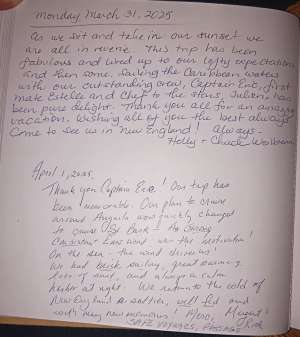 Monday March 31, 2025
As we sit and take in our sunset we
are all in reverie. This trip has been
fabulous and lived up to our lofty expectations
and then some. Sailing the Caribbean waters
with our outstanding crew, Captain Eric, first
mate Estelle and Chef to the stars, Julien, has
been pure delight. Thank you all for an amazing
vacation. Wishing all of you the best always
Come to see us in New England! always -
Holly + Chuck
April 1, 2025
Thank you Captain Eric! Our trip has
been memorable. Our plan to cruise
around Anguilla was quickly changed
to cruise St. Barts - As
was the
On the sea - the wind drives us!
We had brisk sailing, great
lots of and always a calm
harbor at night. We return to the cold of
New England, well fed and
with many new memories! Merci,
SAFE Voyages,